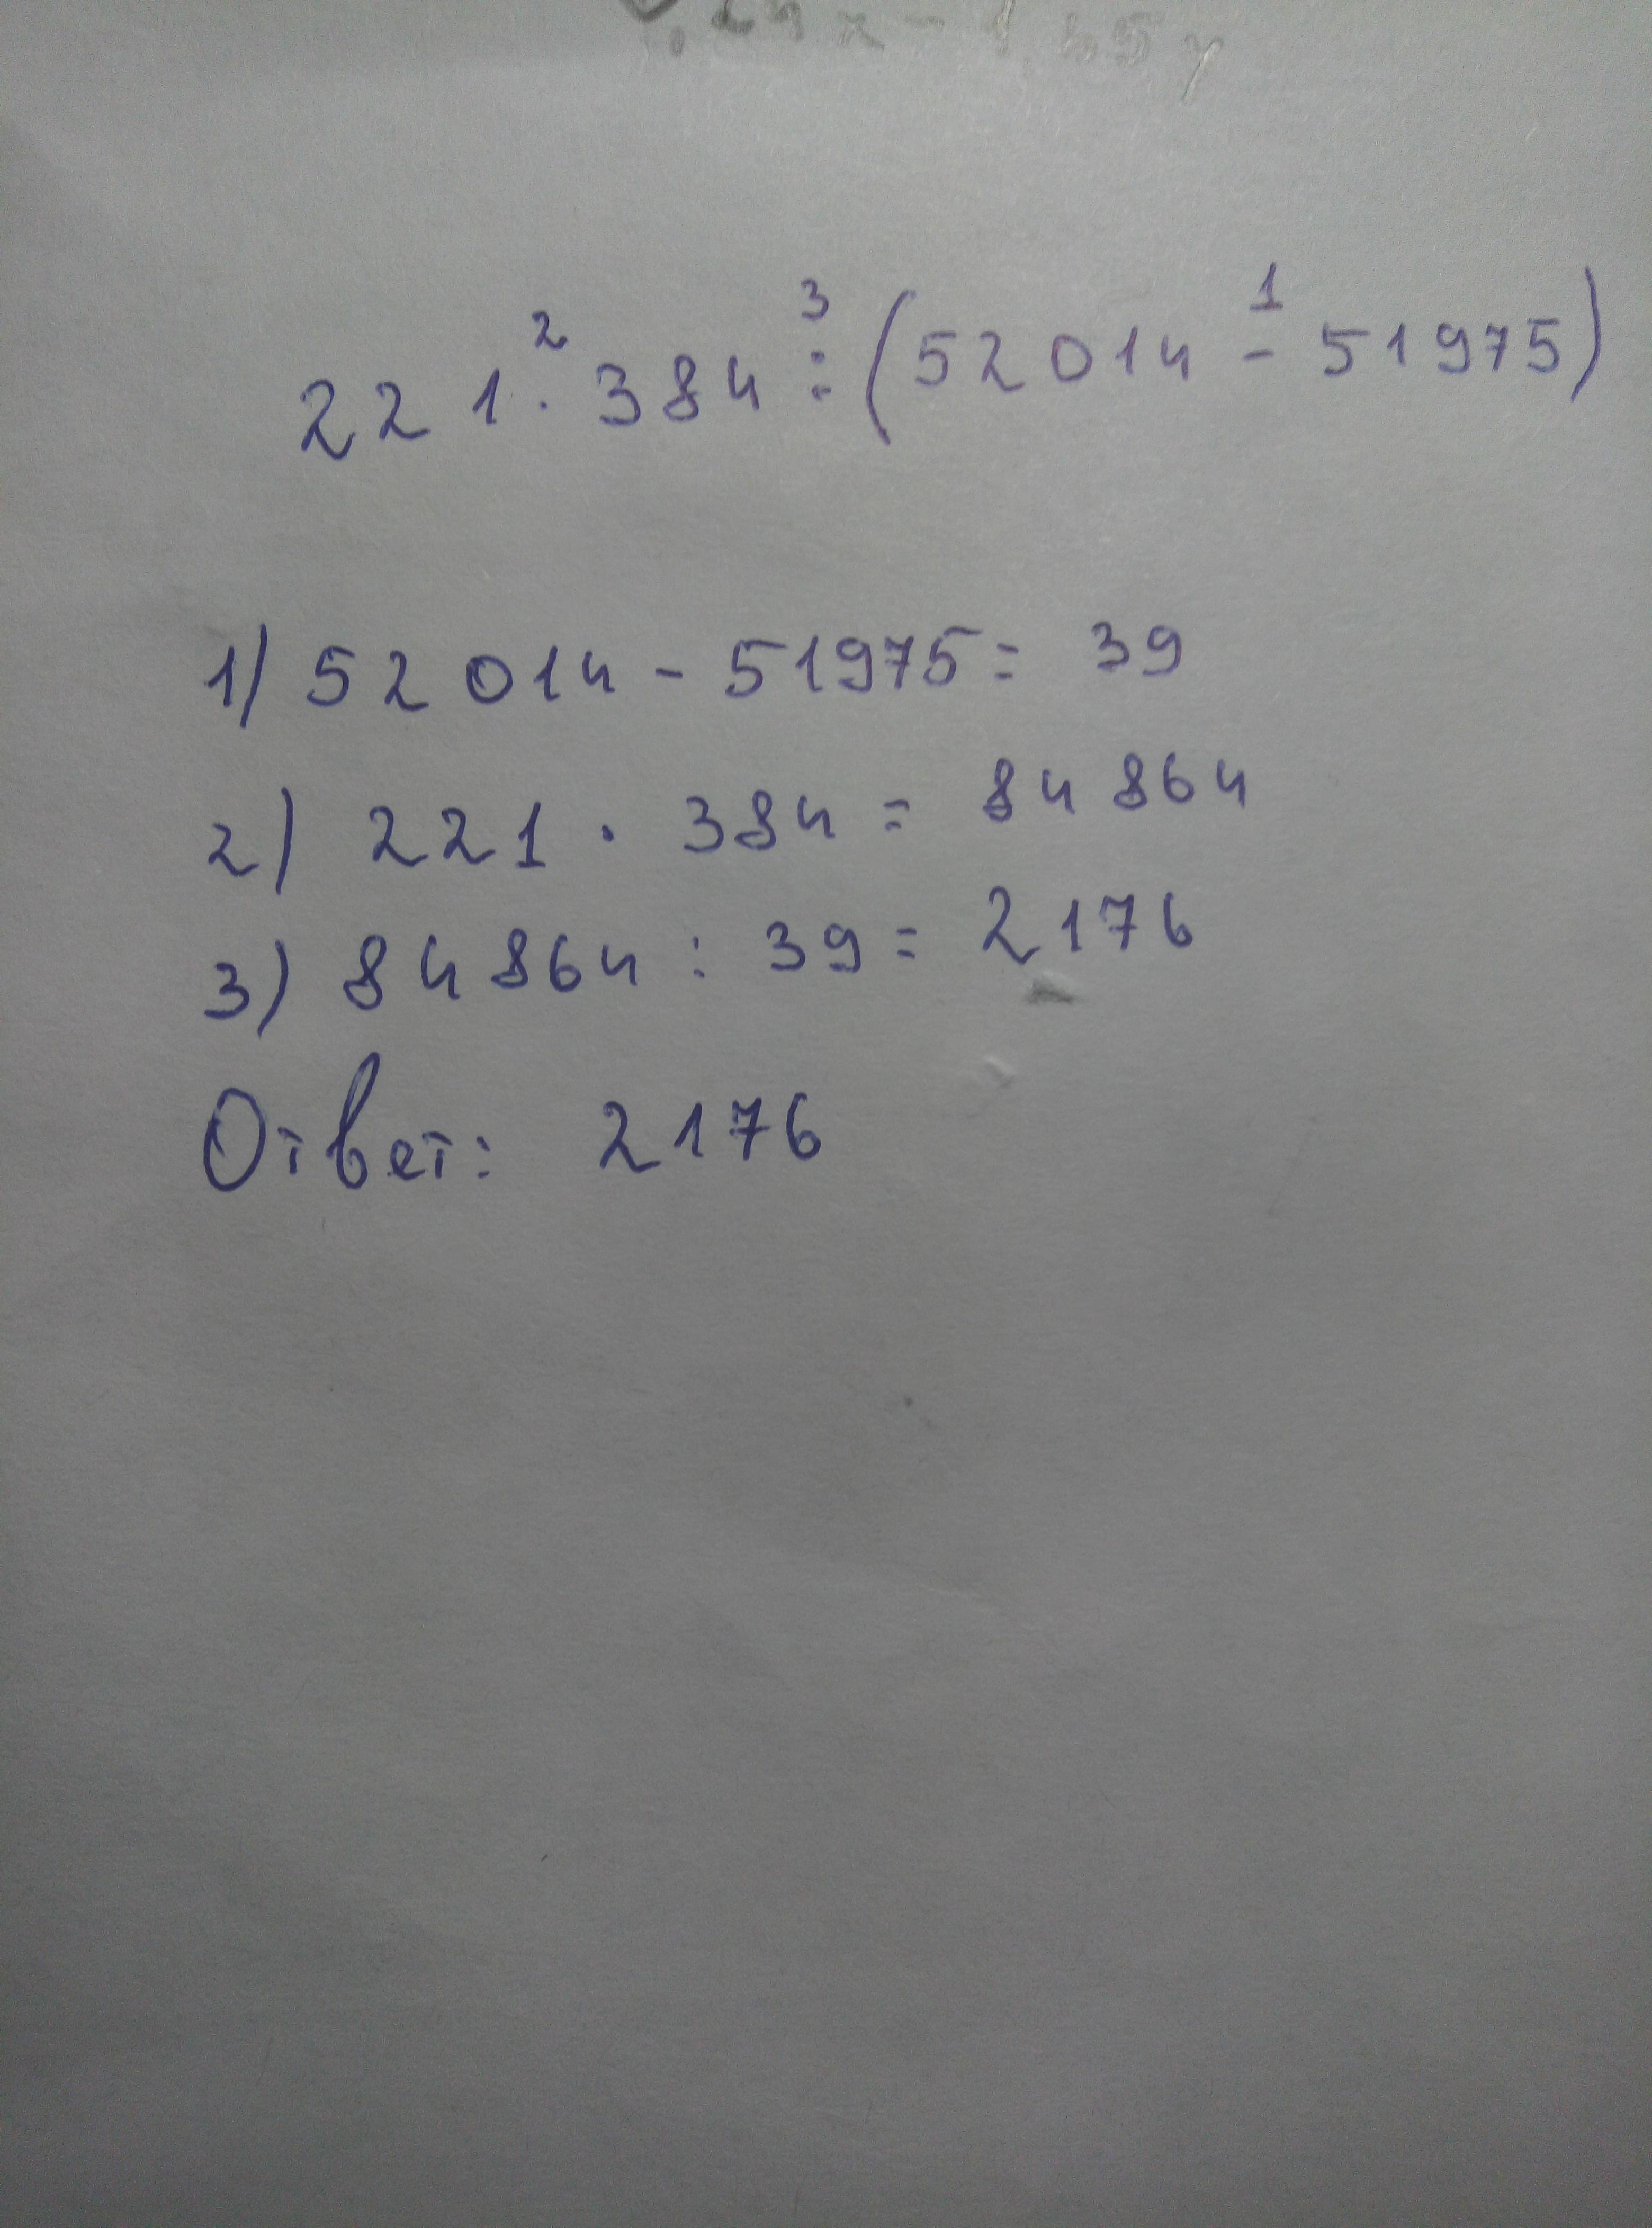 2 3 1
221 · 384 : (52014 - 51975)
1) 52014 - 51975 = 39
2) 221 · 384 = 84864
3) 84864 : 39 = 2176
Ответ: 2176